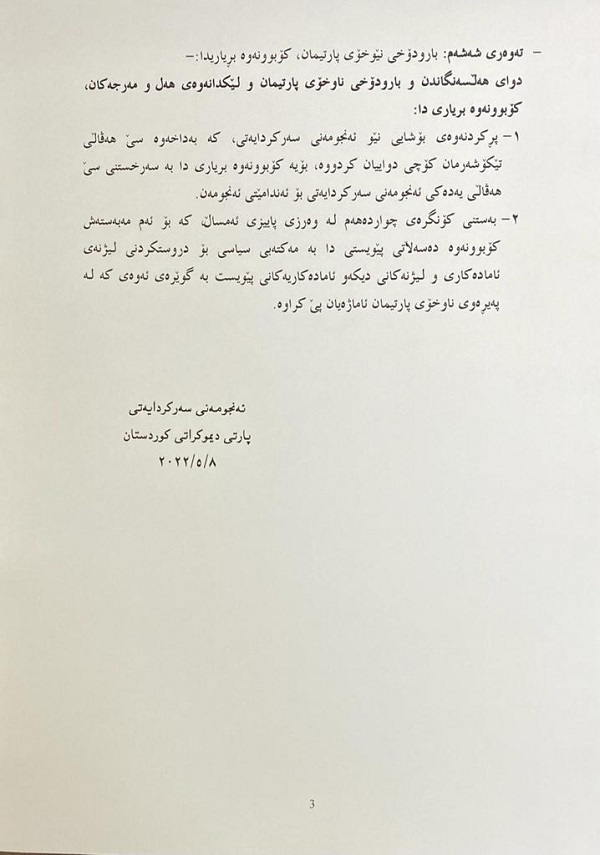 – تەوەری شەشەم: بارودۆخی نێوخۆی پارتیمان، کۆبوونەوە بڕیاریدا:–
دوای هەڵسەنگاندن و بارودۆخی ناوخۆی پارتیمان و لێکدانەوەی هەل و مەرجەکان،
کۆبوونەوە بریاری دا:
١– پڕکردنەوەی بۆشایی نێو ئەنجومەنی سەرکردایەتی، کە بەداخەوە سێ هەڤاڵی
تێکۆشەرمان کۆچی دواییان کردووە، بۆیە کۆبوونەوە بریاری دا بە سەرخستنی سێ
هەڤاڵی یەدەکی ئەنجومەنی سەرکردایەتی بۆ ئەندامێتی ئەنجومەن.
٢– بەستنی کۆنگرەی چواردەهەم لە وەرزی پاییزی ئەمساڵ، کە بۆ ئەم مەبەستەش
کۆبوونەوە دەسەڵاتی پێویستی دا بە مەکتەبی سیاسی بۆ دروستکردنی لیژنەی
ئامادەکاری و لیژنەکانی دیکەو ئامادەکاریەکانی پێویست بە گوێرەی ئەوەی کە لە
پەیڕەوی ناوخۆی پارتیمان ئاماژەیان پێ کراوە.
ئەنجومەنی سەرکردایەتی
پارتی دیموکراتی کوردستان
٢٠٢٢/٥/٨
3